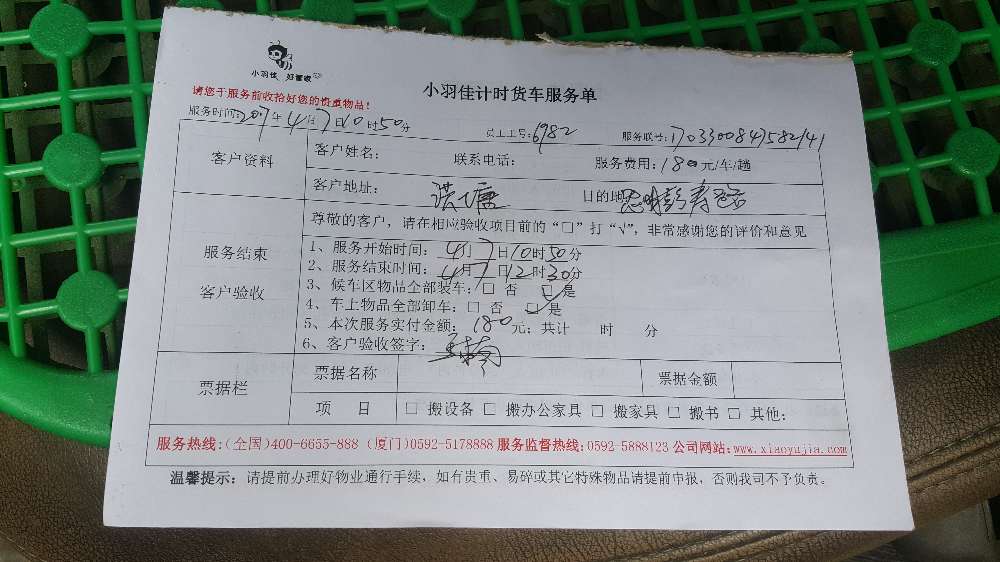 小羽佳 好喜欢
小羽佳计时货车服务单
请您于服务前收拾好您的贵重物品！
服务时间:2017年4月7日10时50分 员工工号:6982 服务联号:1703300847582141
客户资料
客户姓名： 联系电话： 服务费用：180元/车/趟
客户地址： 洪塘 目的地
服务结束
客户验收
尊敬的客户，请在相应验收项目前的“□”打“√”，非常感谢您的评价和意见
1、服务开始时间：4月7日10时50分
2、服务结束时间：4月7日12时30分
3、候车区物品全部装车：□ 否 □ 是
4、车上物品全部卸车：□ 否 □ 是
5、本次服务实付金额：180元；共计 时 分
6、客户验收签字：
票据栏
票据名称 票据金额
项 目 □ 搬设备 □ 搬办公家具 □ 搬家具 □ 搬书 □ 其他：
服务热线：(全国)400-6655-888 (厦门)0592-5178888 服务监督热线:0592-5888123 公司网站:www.xiaoyujia.com
温馨提示：请提前办理好物业通行手续，如有贵重、易碎或其它特殊物品请提前申报，否则我司不予负责。